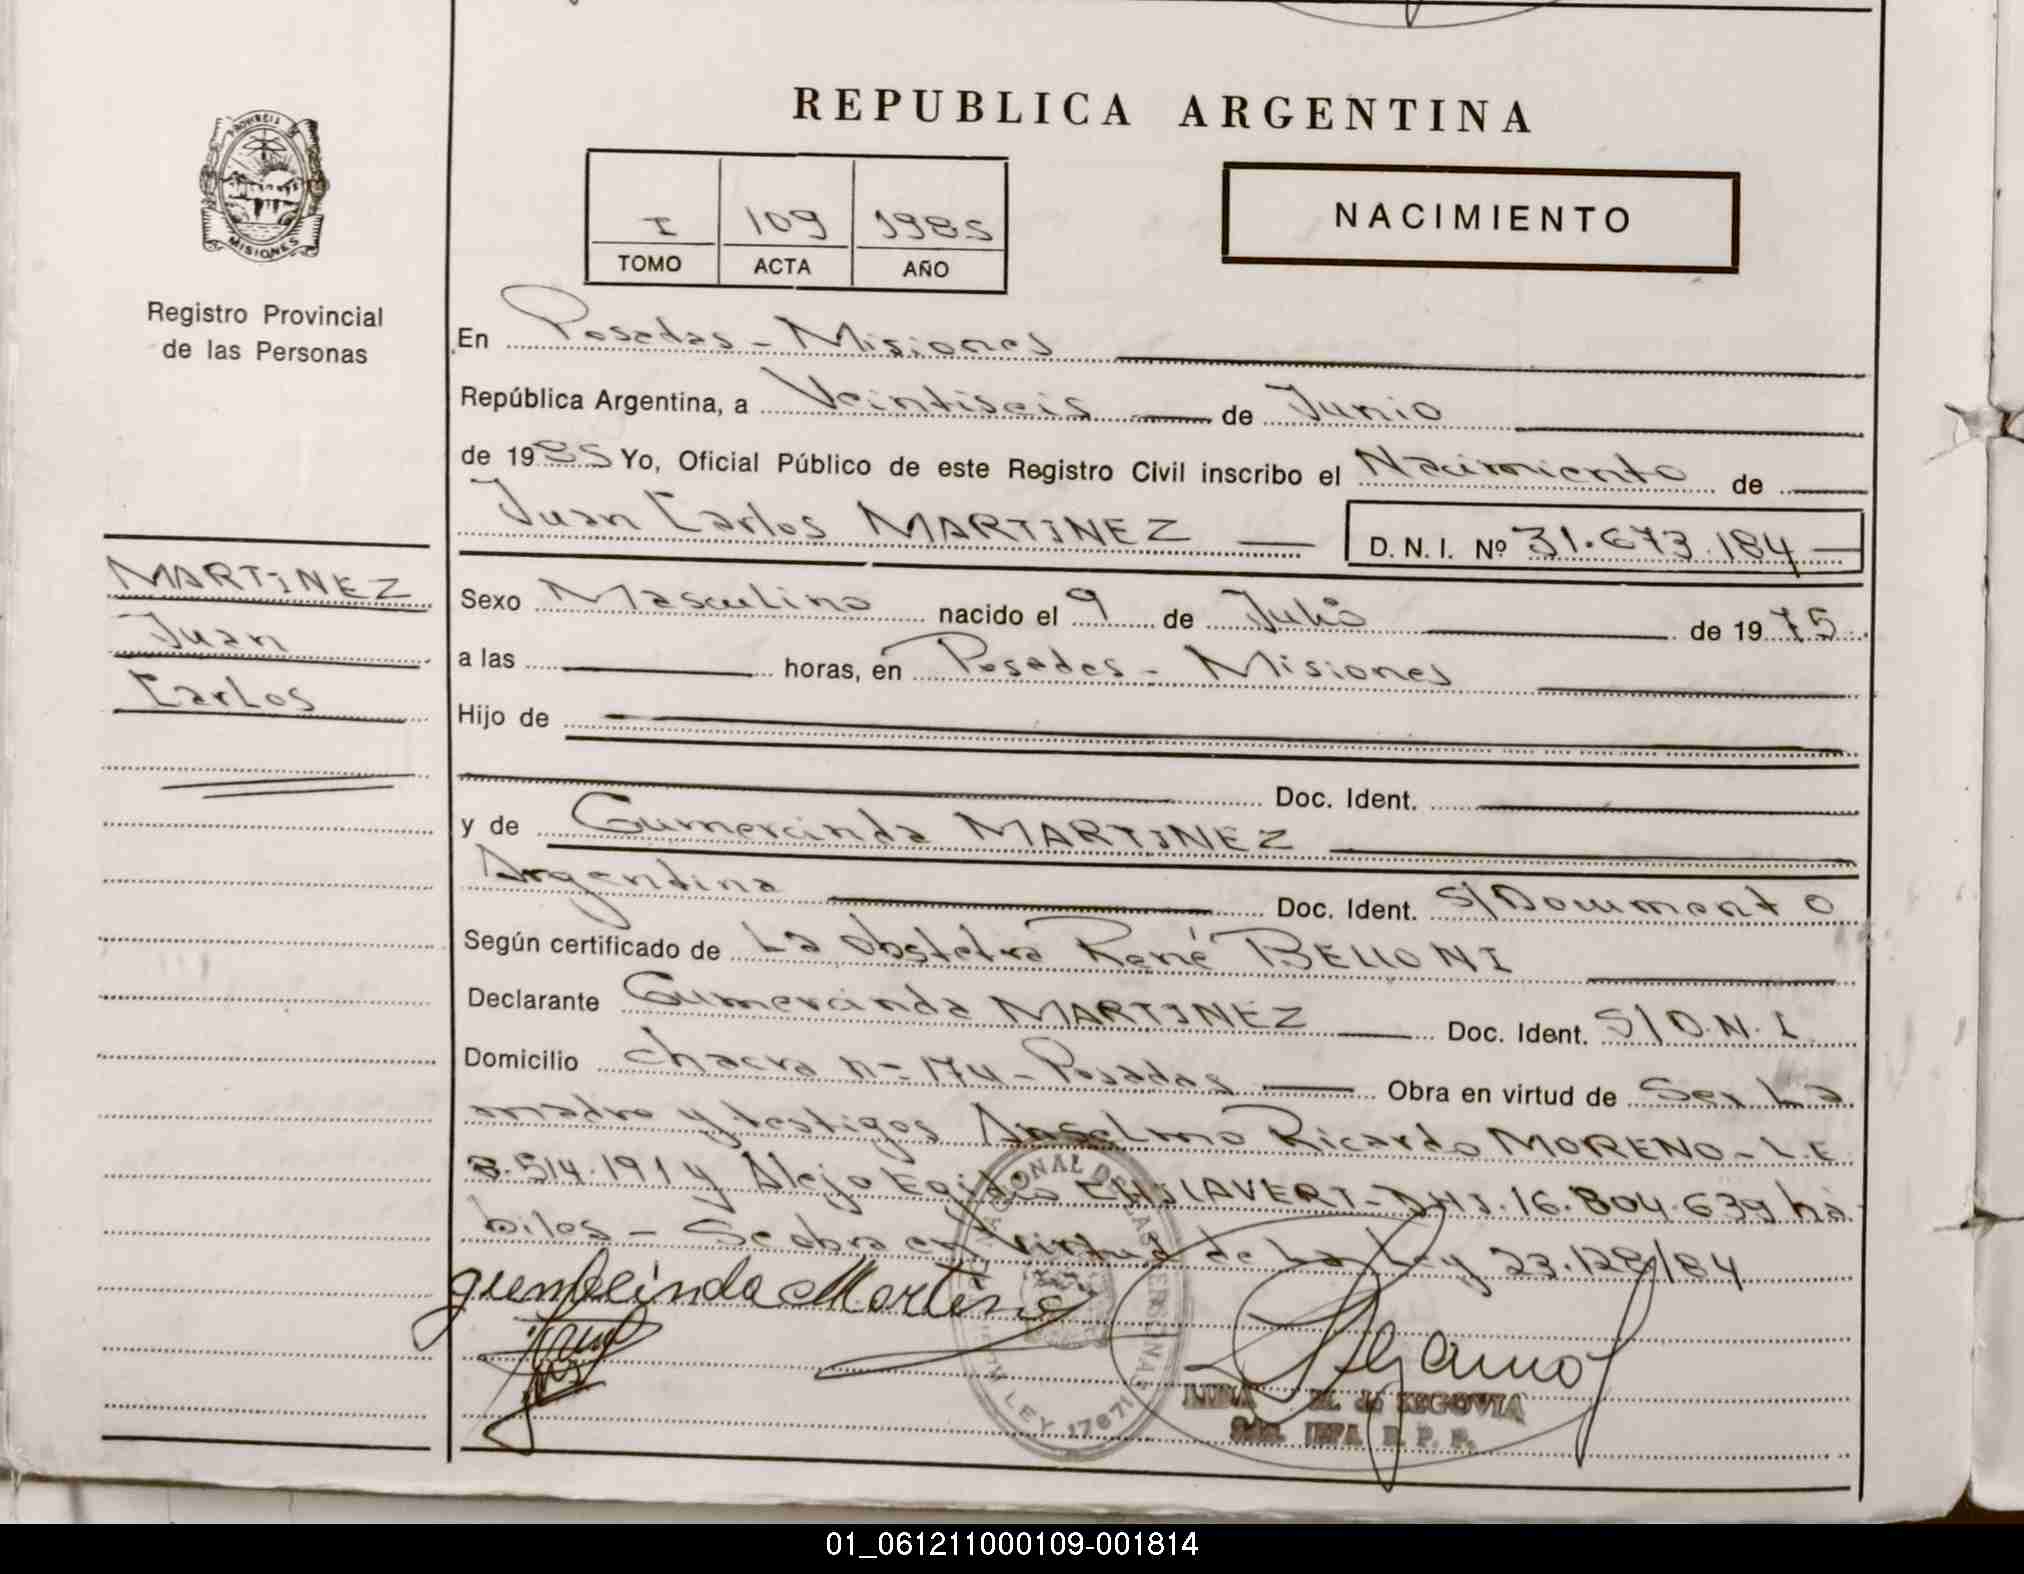 REPUBLICA ARGENTINA
PROVINCIA DE
MISIONES
Registro Provincial
de las Personas
I 109 1985
TOMO ACTA AÑO
NACIMIENTO
En Posadas - Misiones
República Argentina, a Veintiseis de Junio
de 1985 Yo, Oficial Público de este Registro Civil inscribo el Nacimiento de
Juan Carlos MARTINEZ D.N.I. Nº 31.673.184
MARTINEZ
Juan
Carlos
Sexo Masculino nacido el 9 de Julio de 1975
a las horas, en Posadas - Misiones
Hijo de
Doc. Ident.
y de Gumercinda MARTINEZ
Argentina Doc. Ident. S/Documento
Según certificado de La obstetra René BELLONI
Declarante Gumercinda MARTINEZ Doc. Ident. S/D.N.I.
Domicilio chacra nº 174 - Posadas Obra en virtud de Ser La
madre y testigos Anselmo Ricardo MORENO - L.E.
8.514.191 y Alejo Egidio CHILAVERT - DNI. 16.804.639 há
biles - Se obra en virtud de La Ley 23.128/84
gumercinda Martinez
M. de SEGOVIA
R. P. P.
LEY 17671
01_061211000109-001814